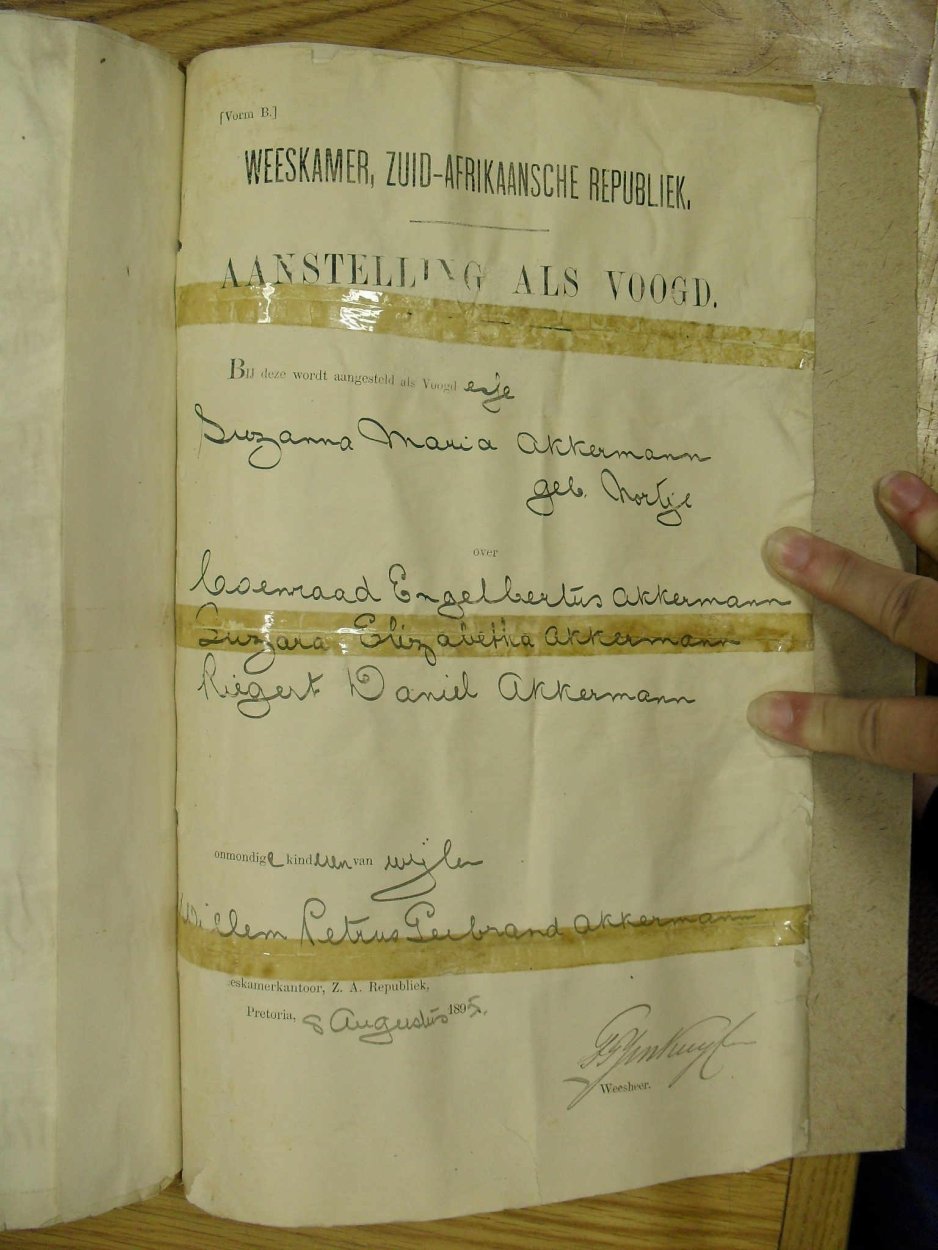 [Vorm B.]
WEESKAMER, ZUID-AFRIKAANSCHE REPUBLIEK.
AANSTELLING ALS VOOGD.
Bij deze wordt aangesteld als Voogd esje
Suzanna Maria Akkermann
geb. Nortje
over
Coenraad Engelbertus Akkermann
Elizabetha Akkermann
Riegert Daniel Akkermann
onmondige kinderen van wijlen
Willem Petrus Akkermann
eeskamerkantoor, Z. A. Republiek,
Pretoria, 8 Augustus 1895.
Weesheer.